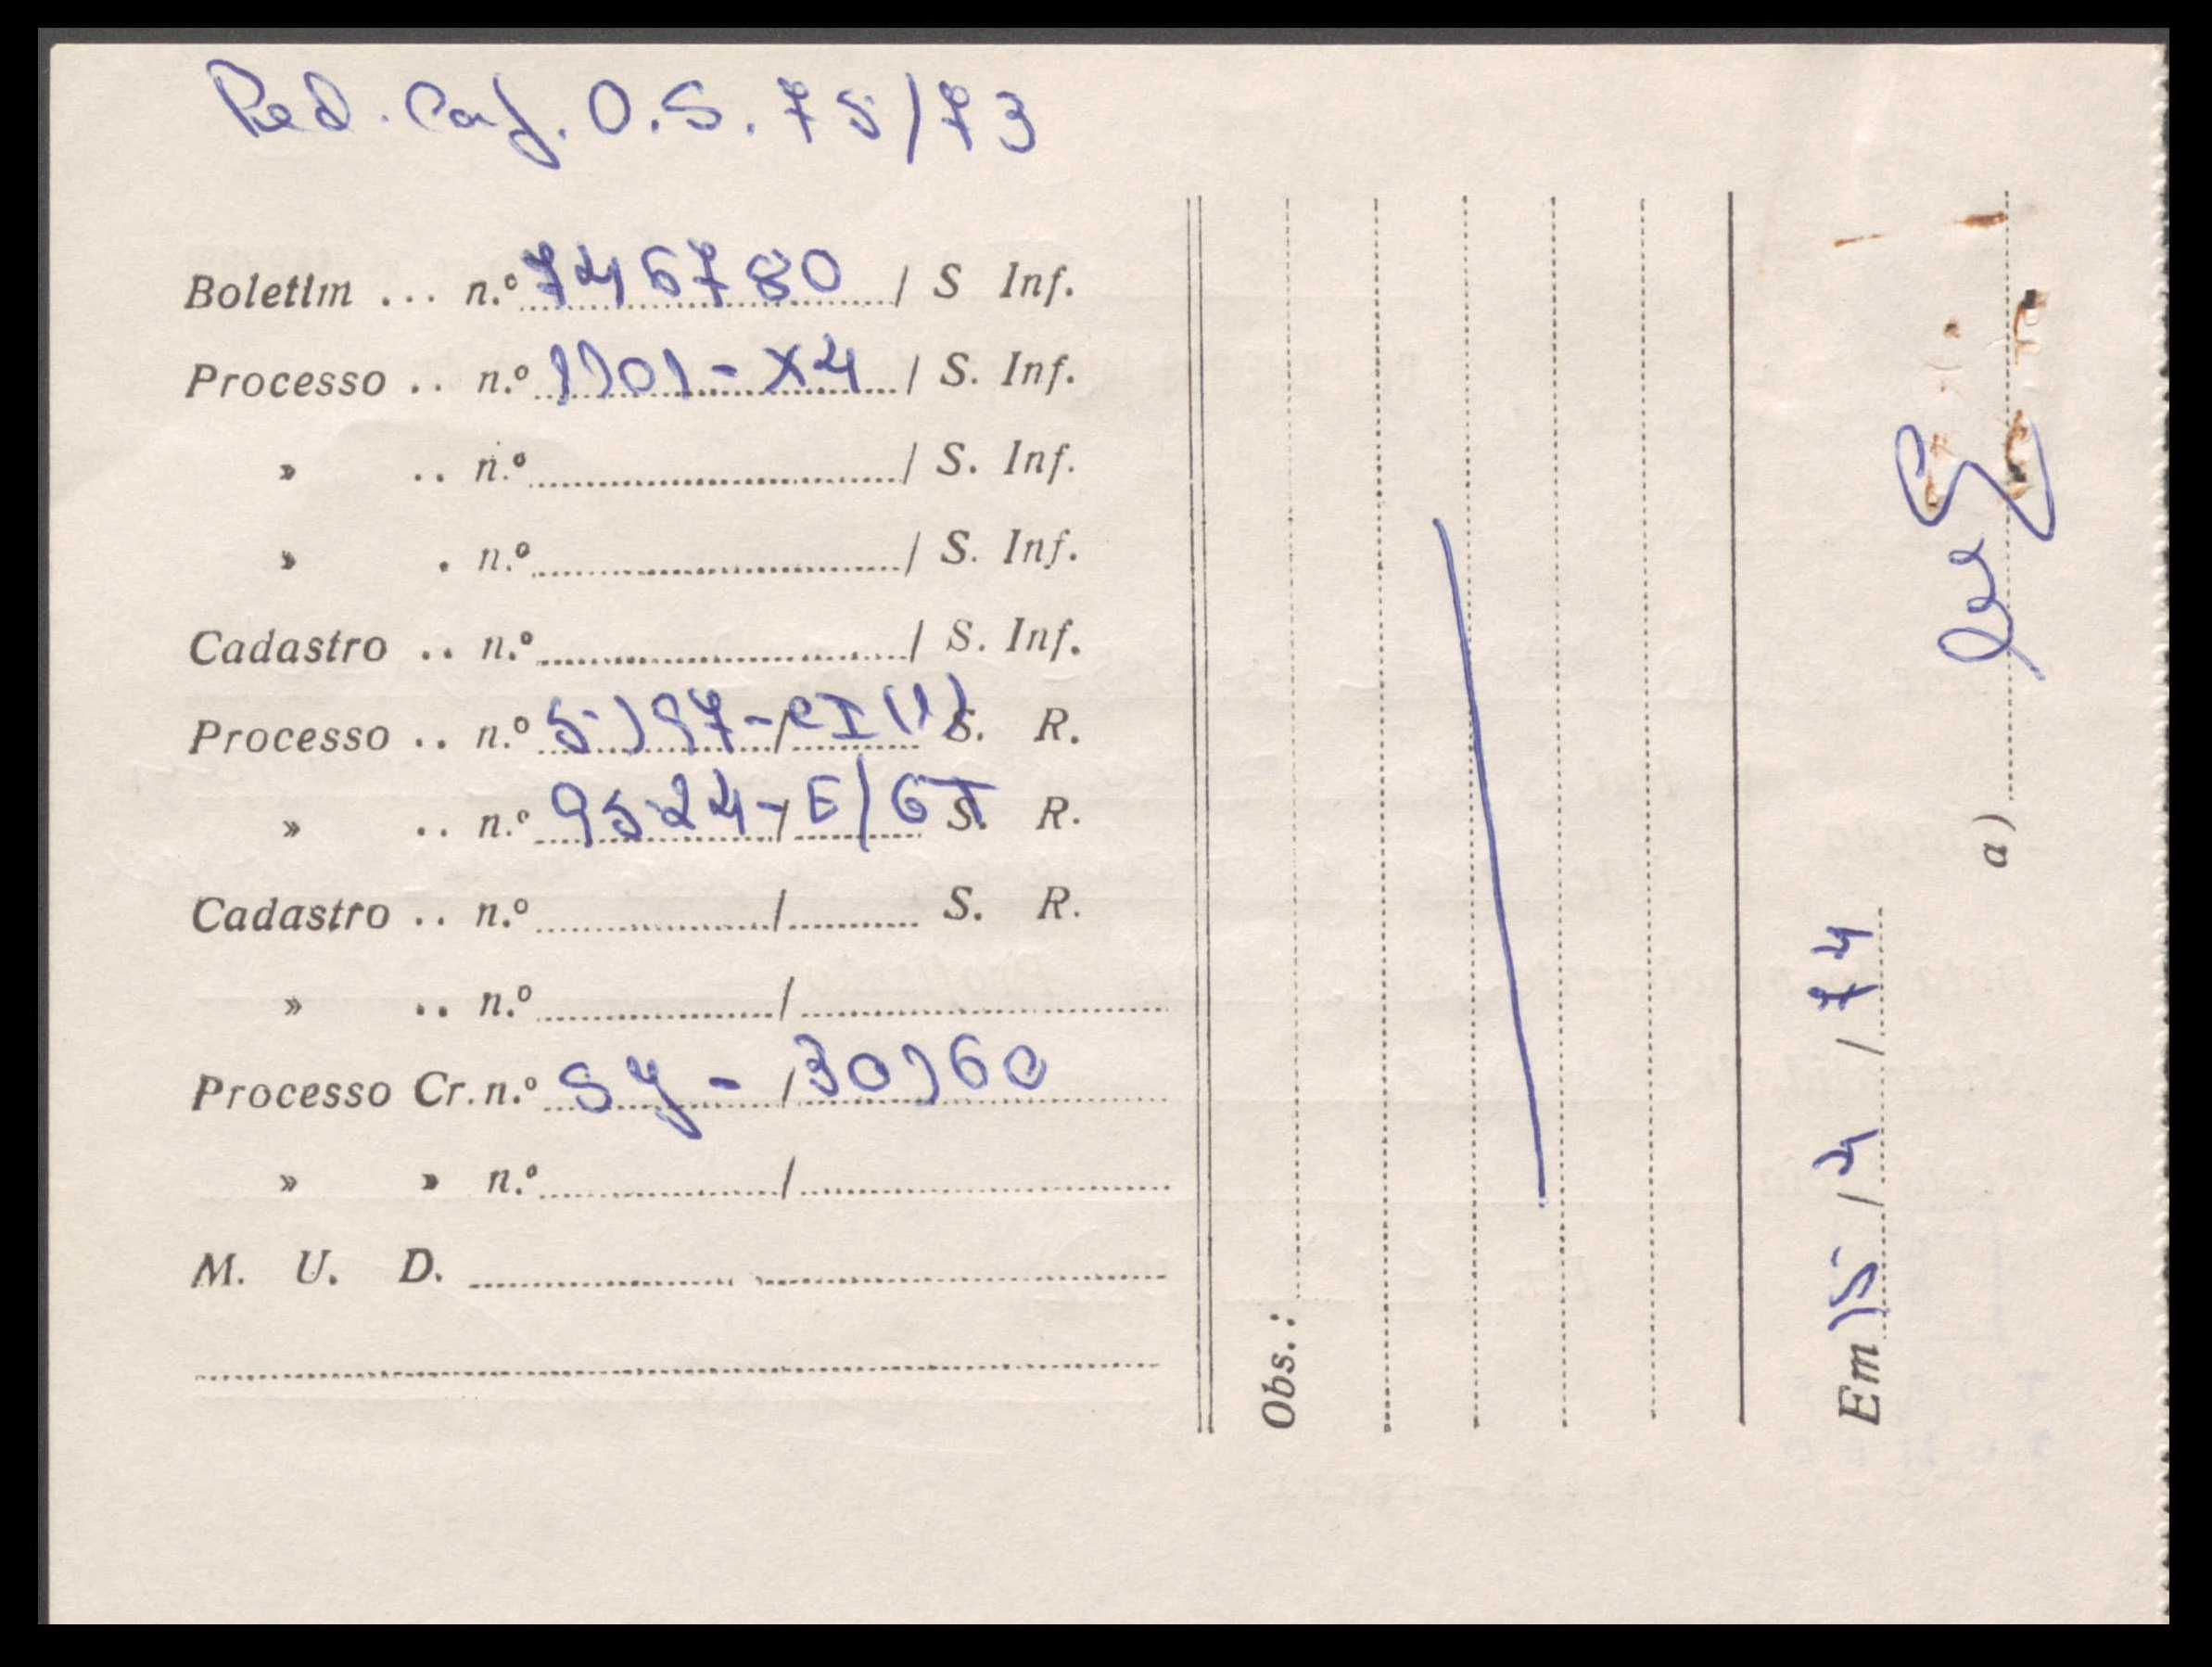 Red. Caf. O.S. 75/73
Boletim ... n.º 746780 / S Inf.
Processo .. n.º 1101 - X4 / S. Inf.
» .. n.º / S. Inf.
» . n.º / S. Inf.
Cadastro .. n.º / S. Inf.
Processo .. n.º 5197 - / CI (1) S. R.
» .. n.º 9524 - / E/GT S. R.
Cadastro .. n.º / S. R.
» .. n.º /
Processo Cr. n.º SJ - / 30160
» » n.º /
M. U. D.
Obs.:
Em 15 / 4 / 74
a)